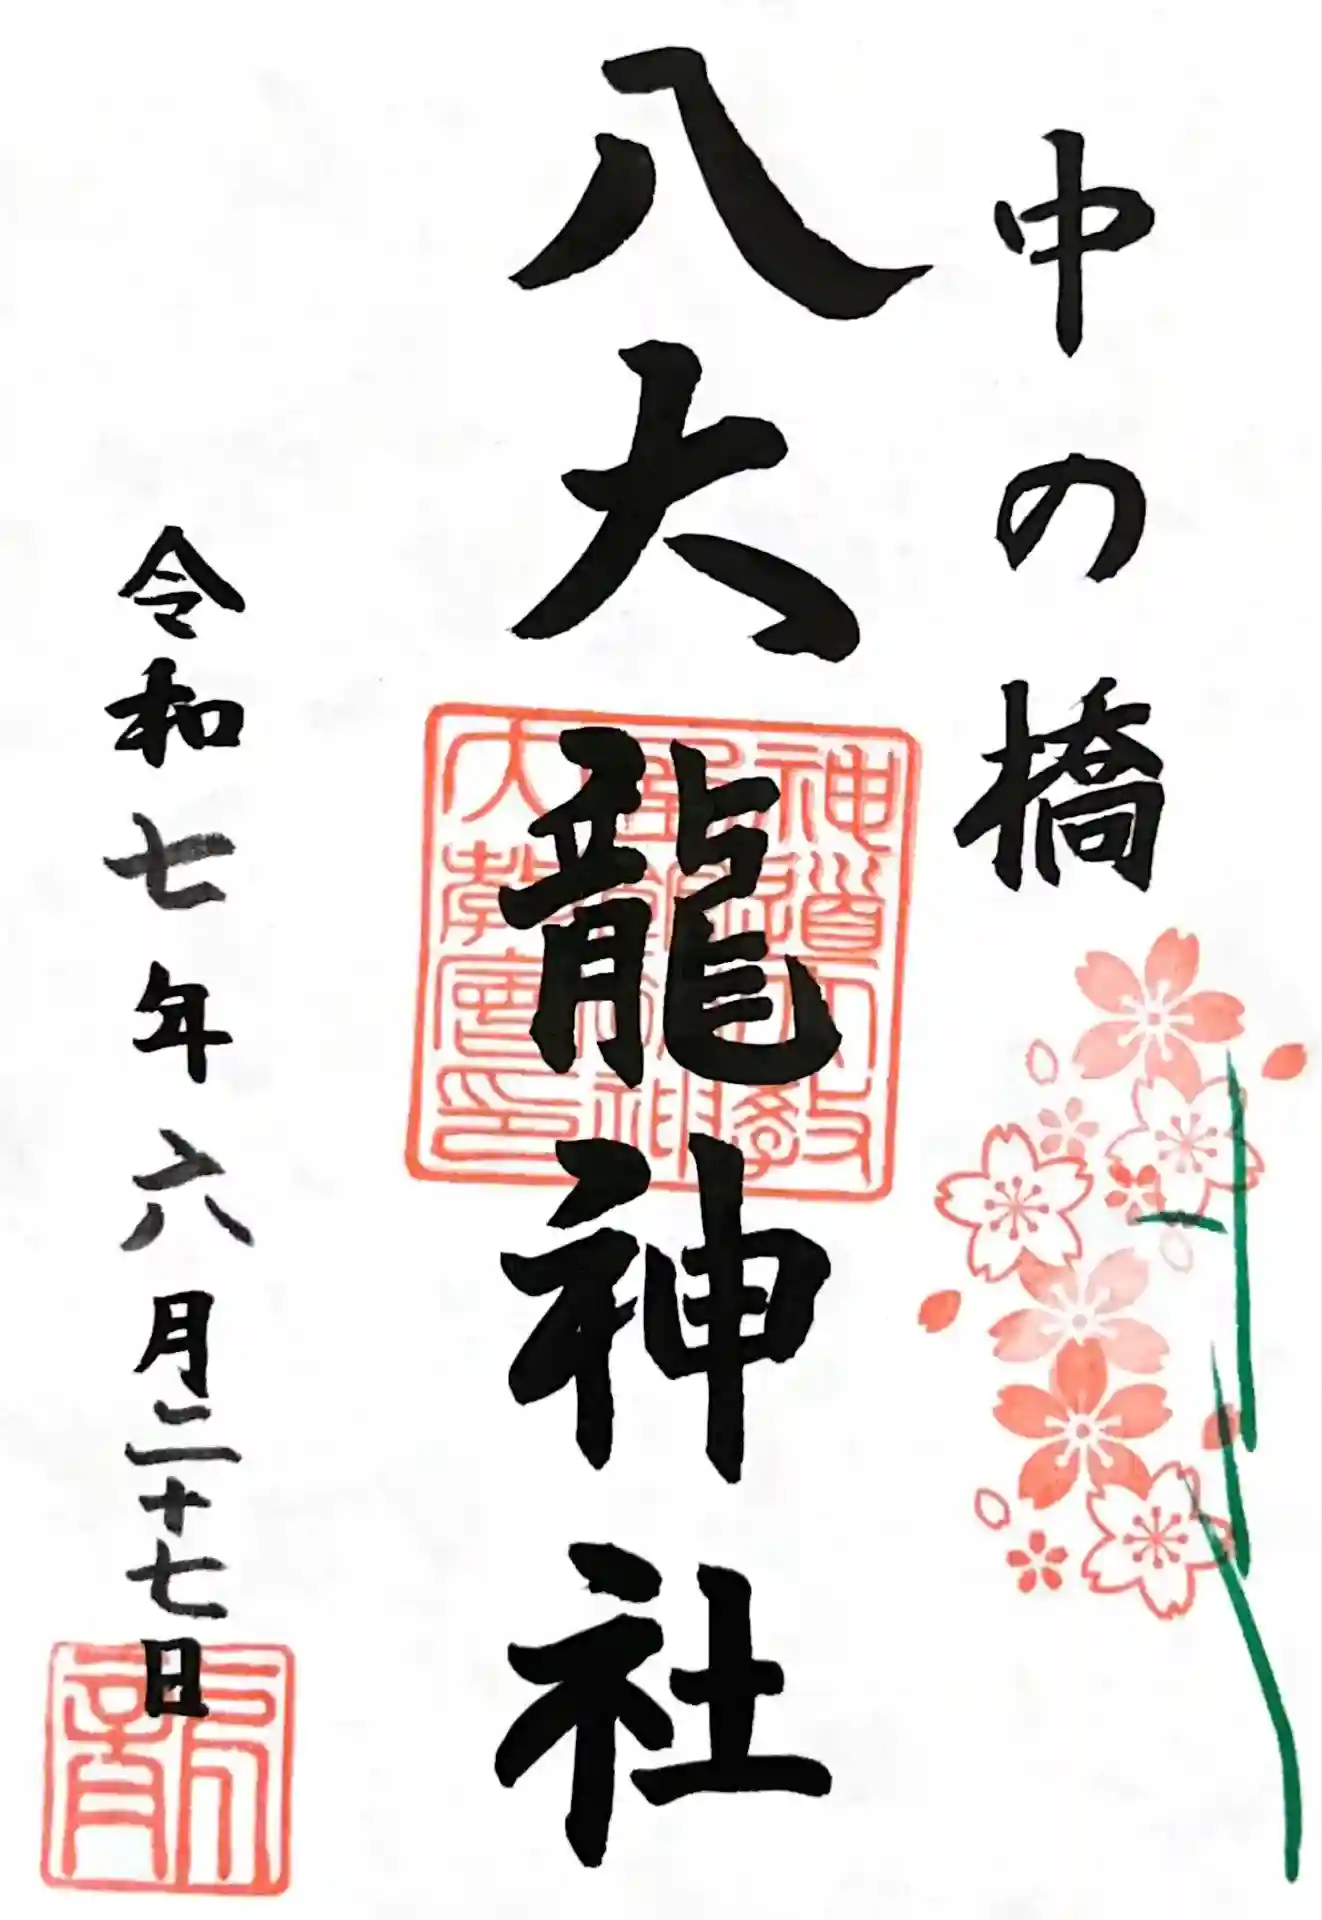 中の橋
八大龍神社
令和七年六月二十七日